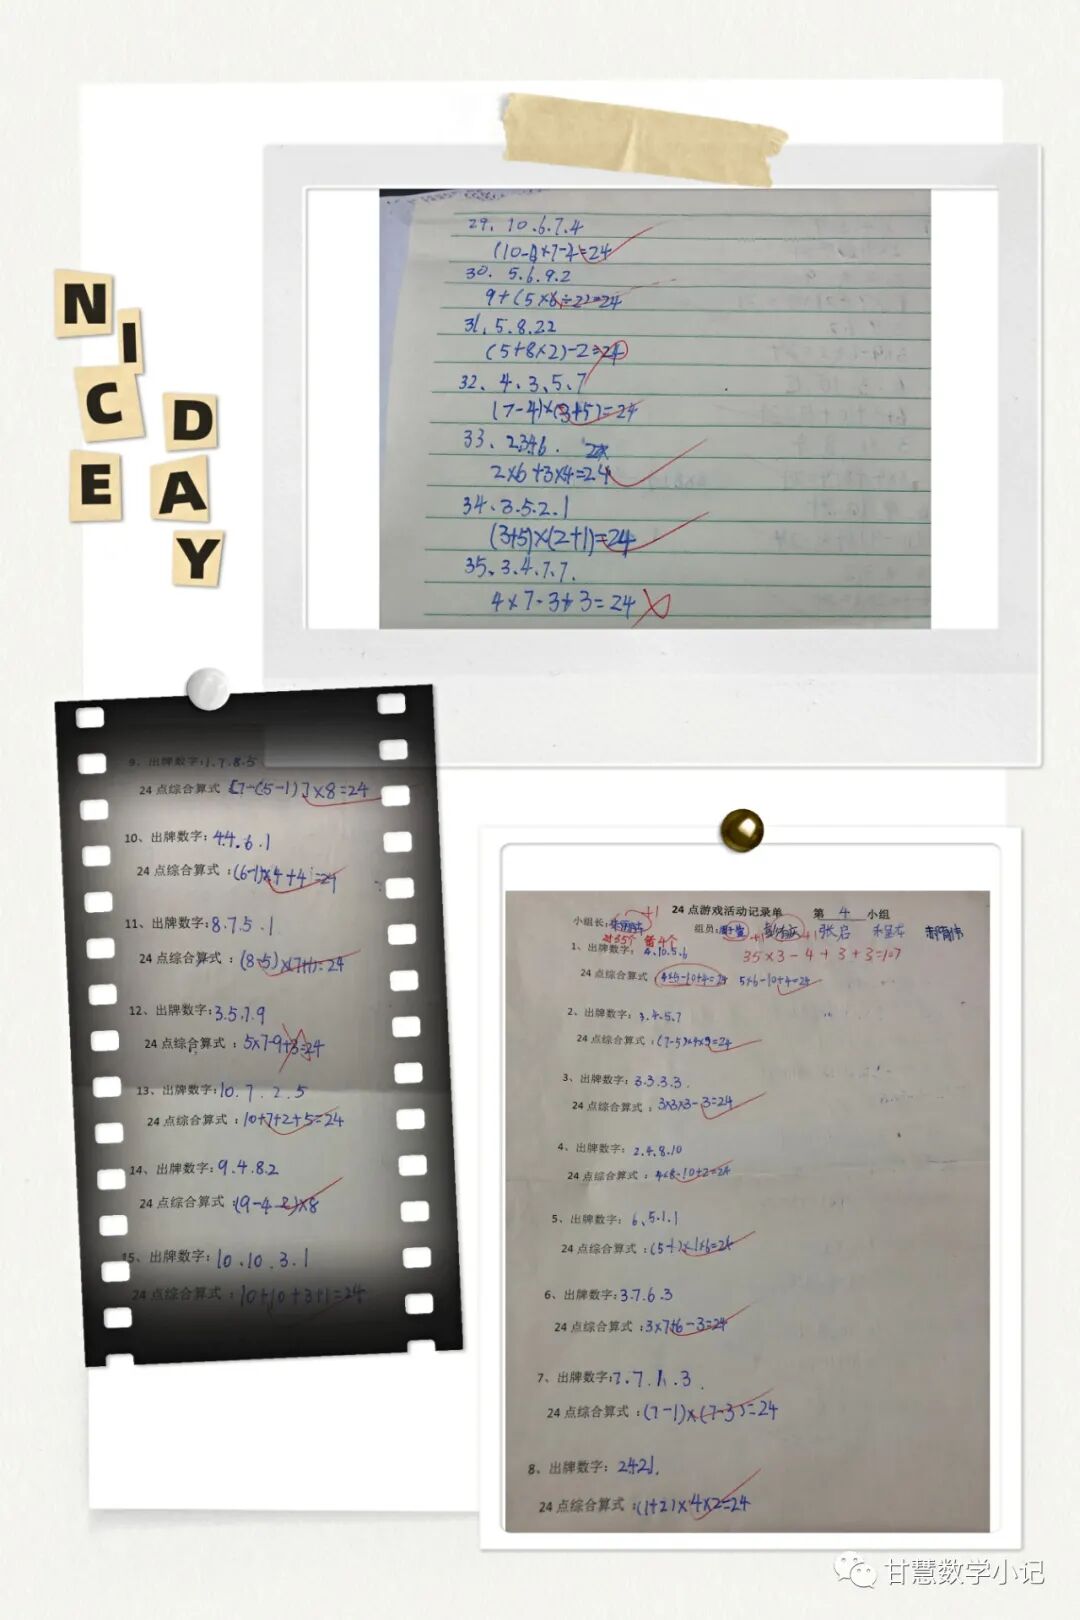 NICE
DAY
29、10.6.7.4
30. 5.6.9.2
9+(5×6÷2)=24
31、5.8.2.2
(5+8×2)-2=24
32、4、3、5、7
(7-4)×(3+5)=24
33、2346.
2×6+3×4=24
34、3.5.2.1
(3+5)×(2+1)=24
35、3.4.7.7.
4×7-3+3=24
9、出牌数字:1.7.8.5
24点综合算式 [7-(5-1)]×8=24
10、出牌数字:4.4.6.1
24点综合算式:(6-1)×4+4=24
11、出牌数字:8.7.5.1
24点综合算式:(8-5)×(7+1)=24
12、出牌数字:3.5.7.9
24点综合算式:5×7-9+3=24
13、出牌数字:10.7.2.5
24点综合算式:10+7+2+5=24
14、出牌数字:9.4.8.2
24点综合算式:(9-4-2)×8
15、出牌数字:10.10.3.1
24点综合算式:10+10+3+1=24
24点游戏活动记录单 第 4 小组
小组长: +1 组员: 张启
对35个 错4个
35×3-4+3+3=107
1、出牌数字:4.10.5.6
24点综合算式 5×6-10+4=24
2、出牌数字:3.4.5.7
24点综合算式:(7-5)×4×3=24
3、出牌数字:3.3.3.3.
24点综合算式:3×3×3-3=24
4、出牌数字:2.4.8.10
24点综合算式:4×8-10+2=24
5、出牌数字:6、5.1.1
24点综合算式:(5-1)×1×6=24
6、出牌数字:3.7.6.3
24点综合算式:3×7+6-3=24
7、出牌数字:7.7.1.3.
24点综合算式:(7-1)×(7-3)=24
8、出牌数字:2421.
24点综合算式:(1+2)×4×2=24
甘慧数学小记